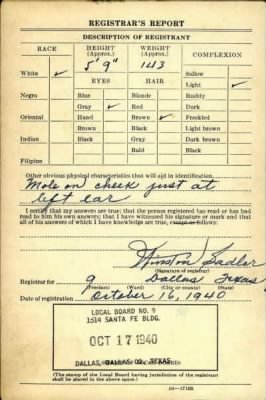 REGISTRAR'S REPORT
DESCRIPTION OF REGISTRANT
RACE HEIGHT (Approx.) WEIGHT (Approx.) COMPLEXION
5' 9" 143
White ✓ Sallow
EYES HAIR Light ✓
Negro Blue Blonde Ruddy
Gray ✓ Red Dark
Oriental Hazel Brown ✓ Freckled
Brown Black Light brown
Indian Black Gray Dark brown
Bald Black
Filipino
Other obvious physical characteristics that will aid in identification
Mole on cheek just at
left ear
I certify that my answers are true; that the person registered has read or has had
read to him his own answers; that I have witnessed his signature or mark and that
all of his answers of which I have knowledge are true, except as follows:
Winston Sadler
(Signature of registrar)
Registrar for 9 Dallas Texas
(Precinct) (Ward) (City or county) (State)
Date of registration October 16, 1940
LOCAL BOARD NO. 9
1514 SANTA FE BLDG.
OCT 17 1940
DALLAS, DALLAS CO. TEXAS
(The stamp of the Local Board having jurisdiction of the registrant
shall be placed in the above space.)